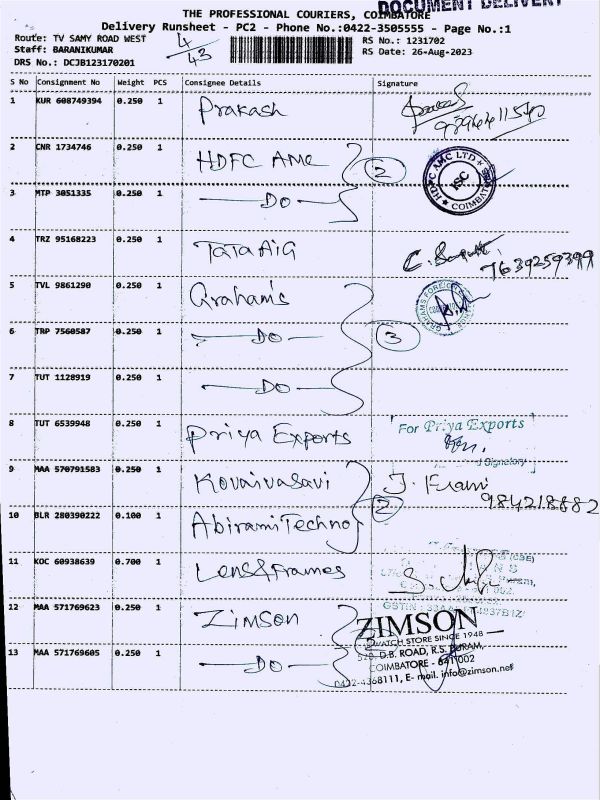 DOCUMENT DELIVERY
THE PROFESSIONAL COURIERS, COIMBATORE
Delivery Runsheet - PC2 - Phone No.:0422-3505555 - Page No.:1
Route: TV SAMY ROAD WEST
4/43
RS No.: 1231702
Staff: BARANIKUMAR
RS Date: 26-Aug-2023
DRS No.: DCJB123170201
S No Consignment No Weight PCS Consignee Details Signature
1 KUR 608749394 0.250 1 Prakash
2 CNR 1734746 0.250 1 HDFC AMC 2
HDFC AMC LTD
KSC
COIMBATORE
3 MTP 3051335 0.250 1 DO
4 TRZ 95168223 0.250 1 TATA AIG
7639259399
5 TVL 9861290 0.250 1 Graham's
GRAHAMS FOREIGN
6 TRP 7560587 0.250 1 DO 3
7 TUT 1128919 0.250 1 DO
8 TUT 6539948 0.250 1 Priya Exports
For Priya Exports
Signatory
9 MAA 570791583 0.250 1 Kovaivasavi
984218882
2
10 BLR 280390222 0.100 1 Abirami Techno
11 KOC 60938639 0.700 1 Lens & Frames
GSTIN :
12 MAA 571769623 0.250 1 Zimson
ZIMSON
WATCH STORE SINCE 1948
D.B. ROAD, R.S. PURAM,
13 MAA 571769605 0.250 1 DO
COIMBATORE - 641 002
0422-4368111, E- mail. info@zimson.net